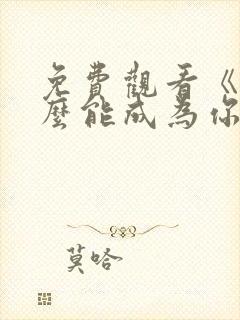 免費觀看《
麼能成為你
莫哈